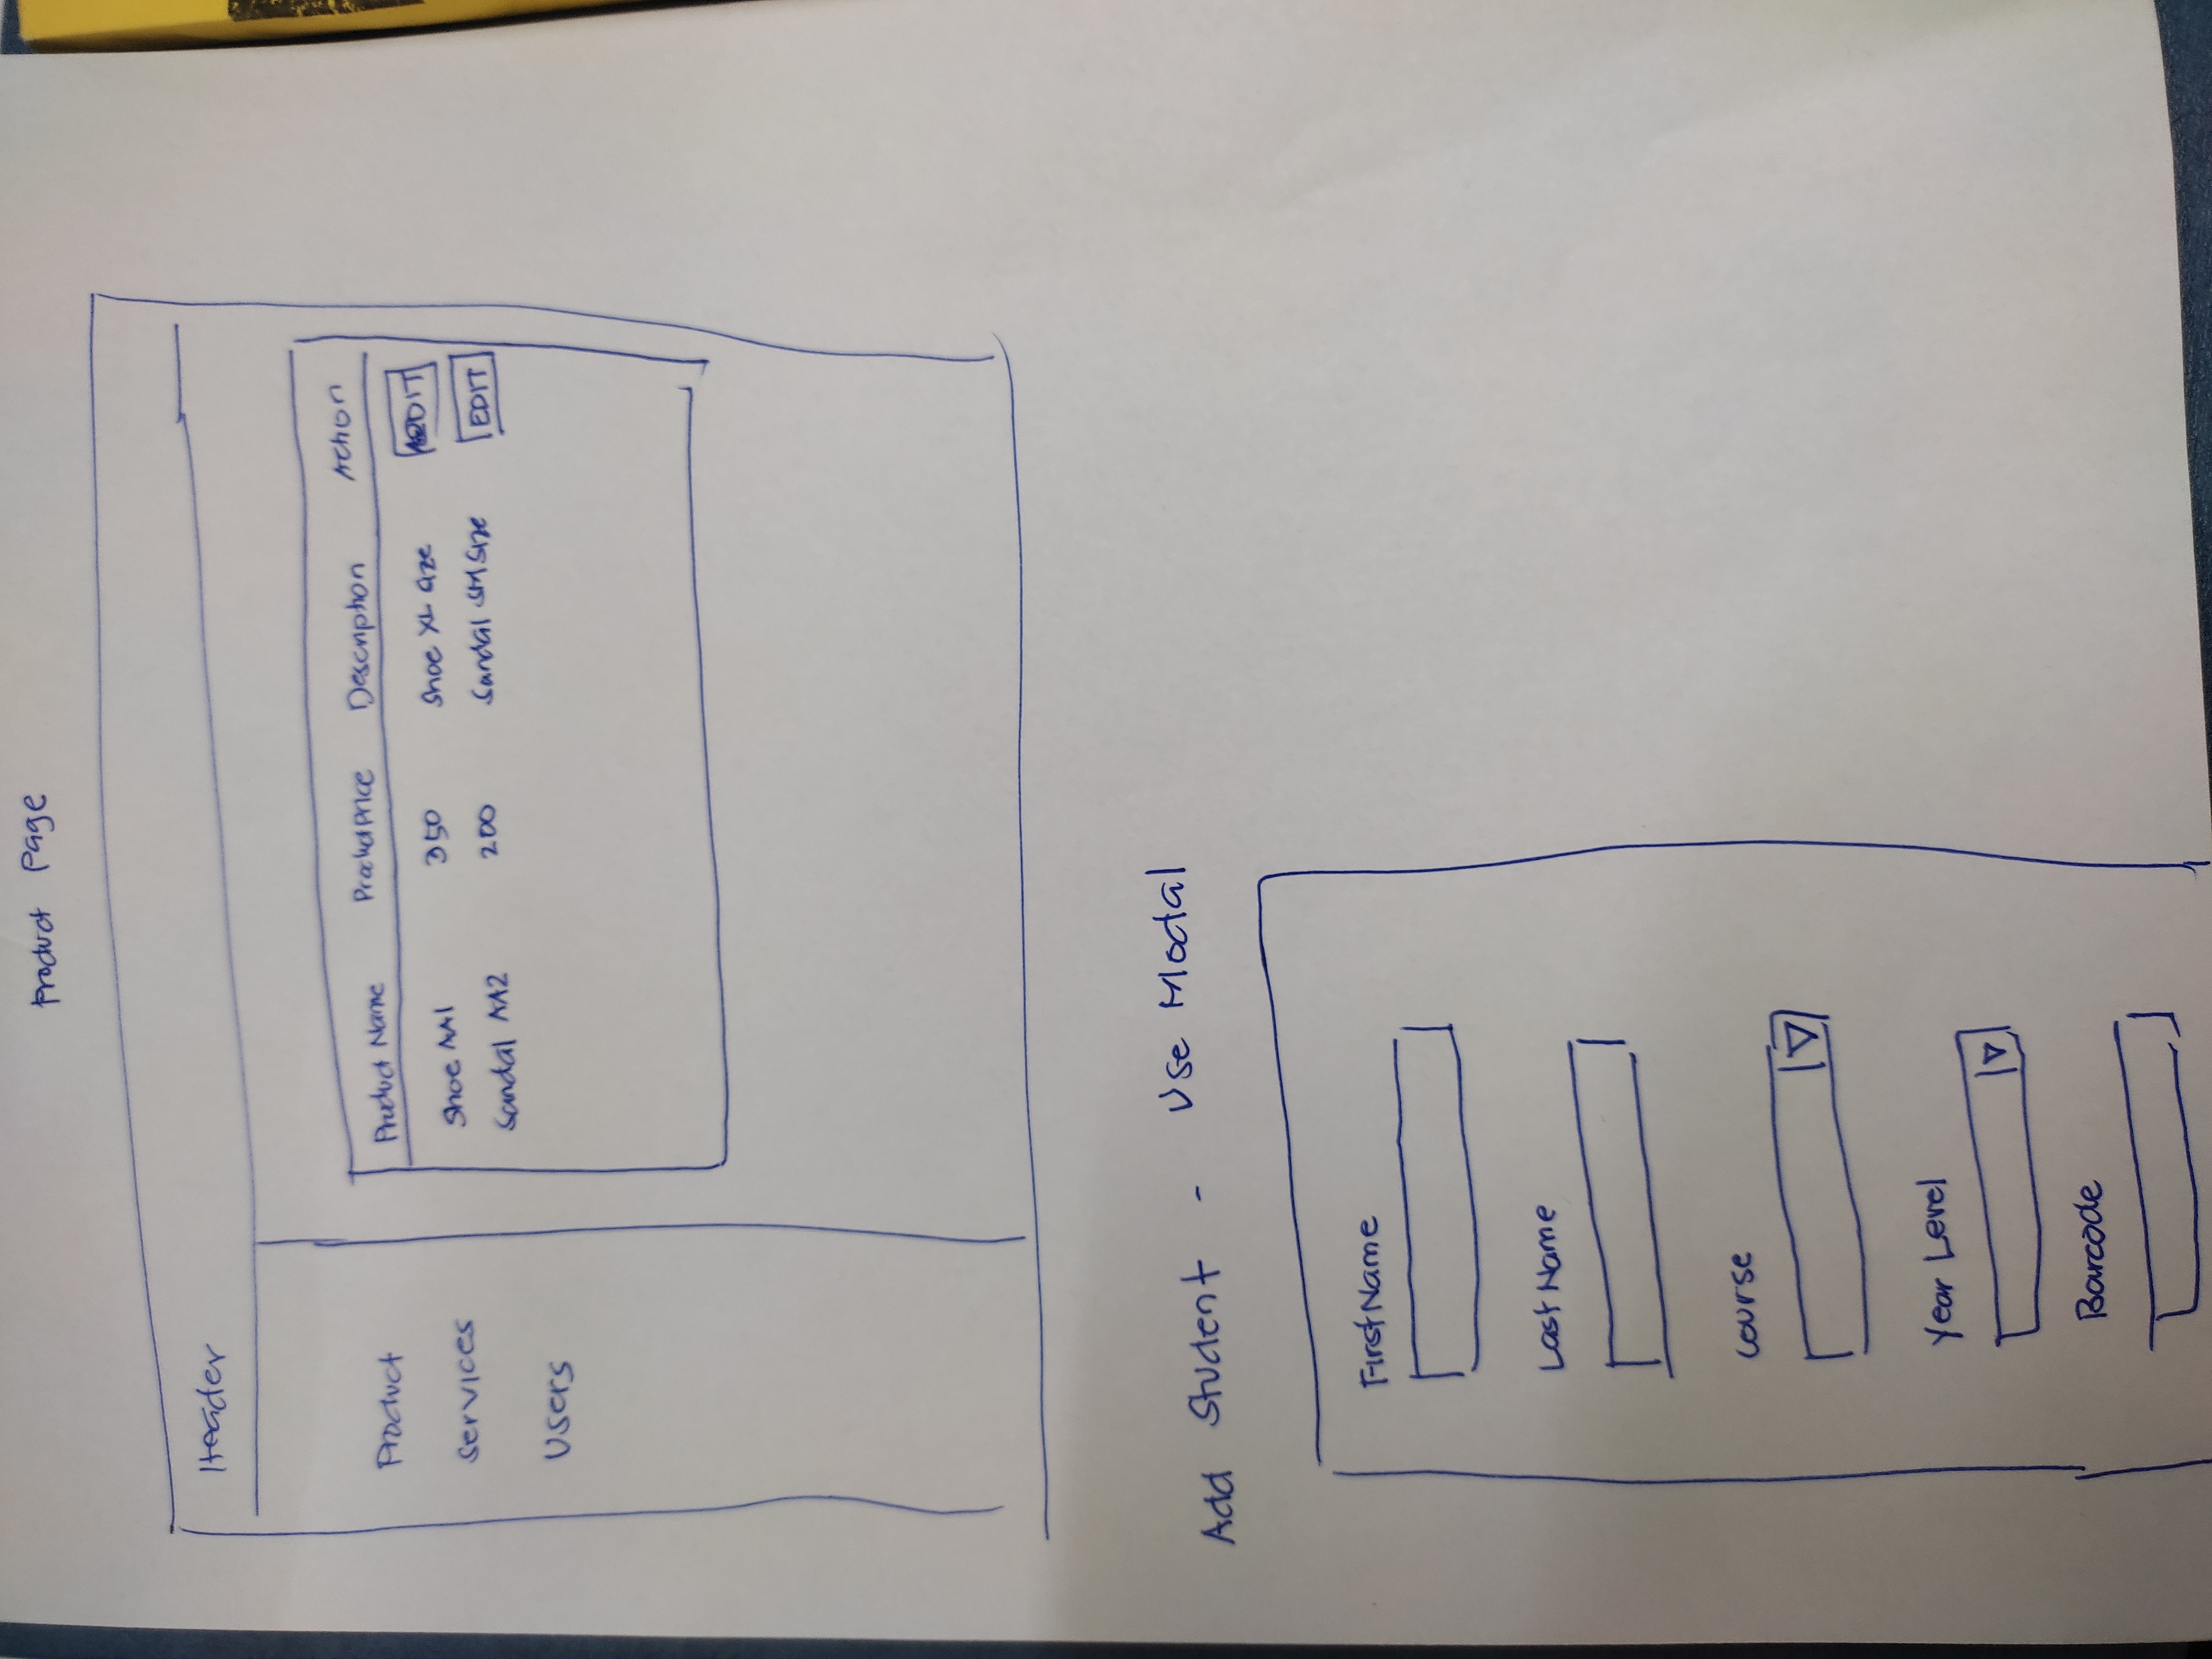 Product Page
Header
Product
Services
Users
Product Name Product Price Description Action
Shoe AA1 350 Shoe XL Size EDIT
Sandal AA2 200 Sandal SM Size EDIT
Add Student - Use Modal
FirstName
Last Name
Course
Year Level
Barcode